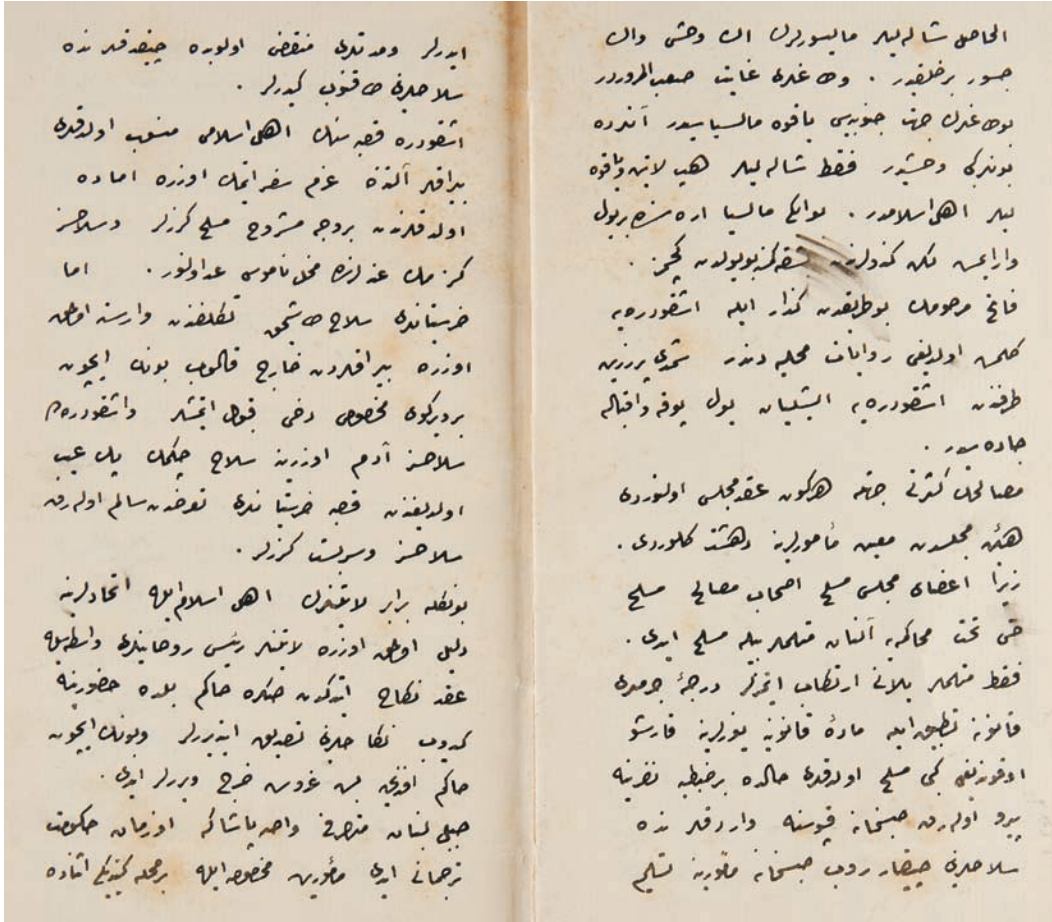 الحاصل شاله‌لیلر مالیسورلرك اك وحشی واك
جسور برخلقدر . وطاغلری غایت صعب المروردر
بوطاغلرك جهت جنوبیسی یاقوه مالسیاسیدر آنلرده
بونلر كبی وحشیدر فقط شاله‌لیلر هپ لاتین ویاقوه
لیلر اهل اسلامدر . بوایكی مالسیا اره سنده بریول
وارایمش لكن كندولرندن بشقه كمسه بویولدن كچمز .
فاتح مرحومك بوطریقدن كذار ایله اشقودره‌یه
كلمش اولدیغی روایات محلیه دندر شمدی پرزرین
طرفندن اشقودره‌یه ایشلیان یول پوقه واقباله
جاده سیدر .
مصالحك كثرتی جهتله هركون عقد مجلس اولنوردی
هیئت مجلسدن معیت مأمورلرینه دهشت كلوردی .
زیرا اعضای مجلس مسلح اصحاب مصالح مسلح
حتی تحت محاكمه‌یه آلنان متهملر بیله مسلح ایدی .
فقط متهملر یلانی ارتكاب ایتمزلر درجۀ جرملری
قانونه تطبیق ایله مادۀ قانونیه یوزلرینه قارشو
اوقوندیغی كبی مسلح اولدقلری حالده برضبطیه نفرینه
پیرو اوله‌رق حبسخانه قپوسنه واردقلرنده
سلاحلرینی چیقاروب حبسخانه مأمورینه تسلیم
ایدرلر ومدتلری منقضی اولوبده چیقدقلرنده
سلاحلرینی طاقنوب كیدرلر .
اشقودره قصبه سنك اهل اسلامی منسوب اولدقلری
بیراقلر آلتنده عزم سفر ایتمك اوزره اماده
اولدقلرندن بروجه مشروح مسلح كزرلر وسلاحسز
كزمك عندلرنده مخل ناموس عد اولنور . اما
خرستیانلری سلاح طاشیمق تكلفندن وارسته اولمق
اوزره بیراقلردن خارج قالوب بونك ایچون
برویركوی مخصوص دخی قبول ایتمشلر واشقودره‌ده
سلاحسز آدم اوزرینه سلاح چكمك پك عیب
اولدیغندن قصبه خرستیانلری تعرضدن سالم اوله‌رق
سلاحسز وسربست كزرلر .
بونكله برابر لاتینلرك اهل اسلام ایله اتحادلرینه
دلیل اولمق اوزره لاتینلر رئیس روحانیلری واسطه‌سیله
عقد نكاح ایتدكدن صكره حاكم بلده حضورینه
كیدوب نكاحلرینی تصدیق ایتدیررلر وبونك ایچون
حاكم افندی‌یه بش غروش خرج ویررلر ایدی .
جبل لبنان متصرفی واصه پاشا كه اوزمان حكومت
ترجمانی ایدی مأموریت مخصوصه ایله برمحله كیتدیكی اثناده